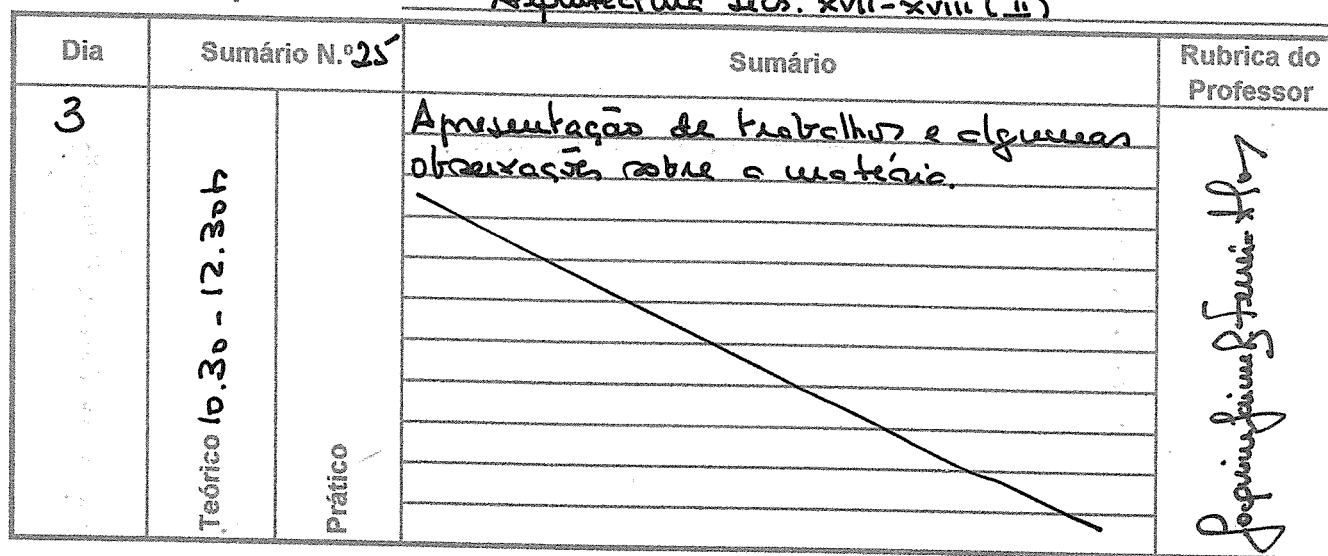 Arquitectura Sécs. XVII-XVIII (II)
Dia
Sumário N.º 25
Sumário
Rubrica do
Professor
3
Teórico 10.30 - 12.30h
Prático
Apresentação de trabalhos e algumas
observações sobre a matéria.
Joaquim Jaime Ferreira